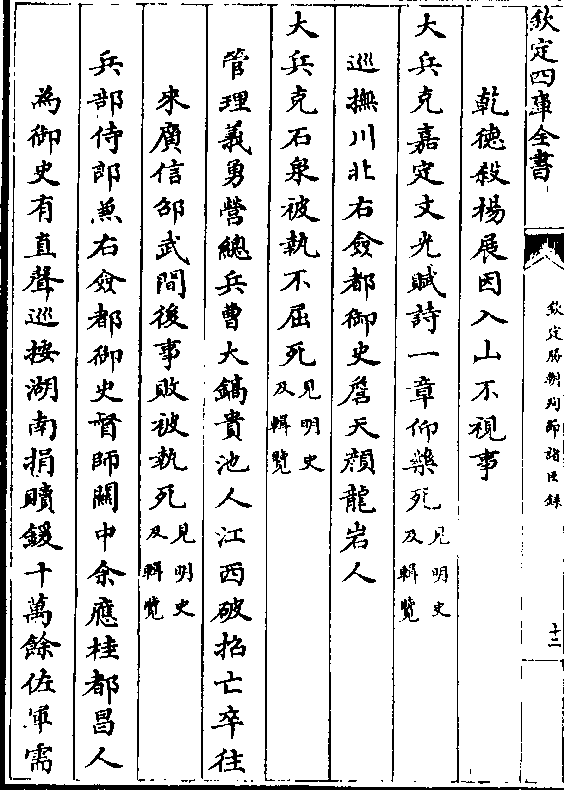 欽定四庫全書
欽定勝朝殉節諸臣錄
十二
乾德殺楊展因入山不視事
大兵克嘉定文光賦詩一章仰藥死見明史及輯覽
巡撫川北右僉都御史詹天顔龍岩人
大兵克石泉被執不屈死見明史及輯覽
管理義勇營總兵曹大鎬貴池人江西破招亡卒往
來廣信邵武間後事敗被執死見明史及輯覽
兵部侍郎兼右僉都御史督師關中余應桂都昌人
為御史有直聲巡按湖南捐贖鍰十萬餘佐軍需